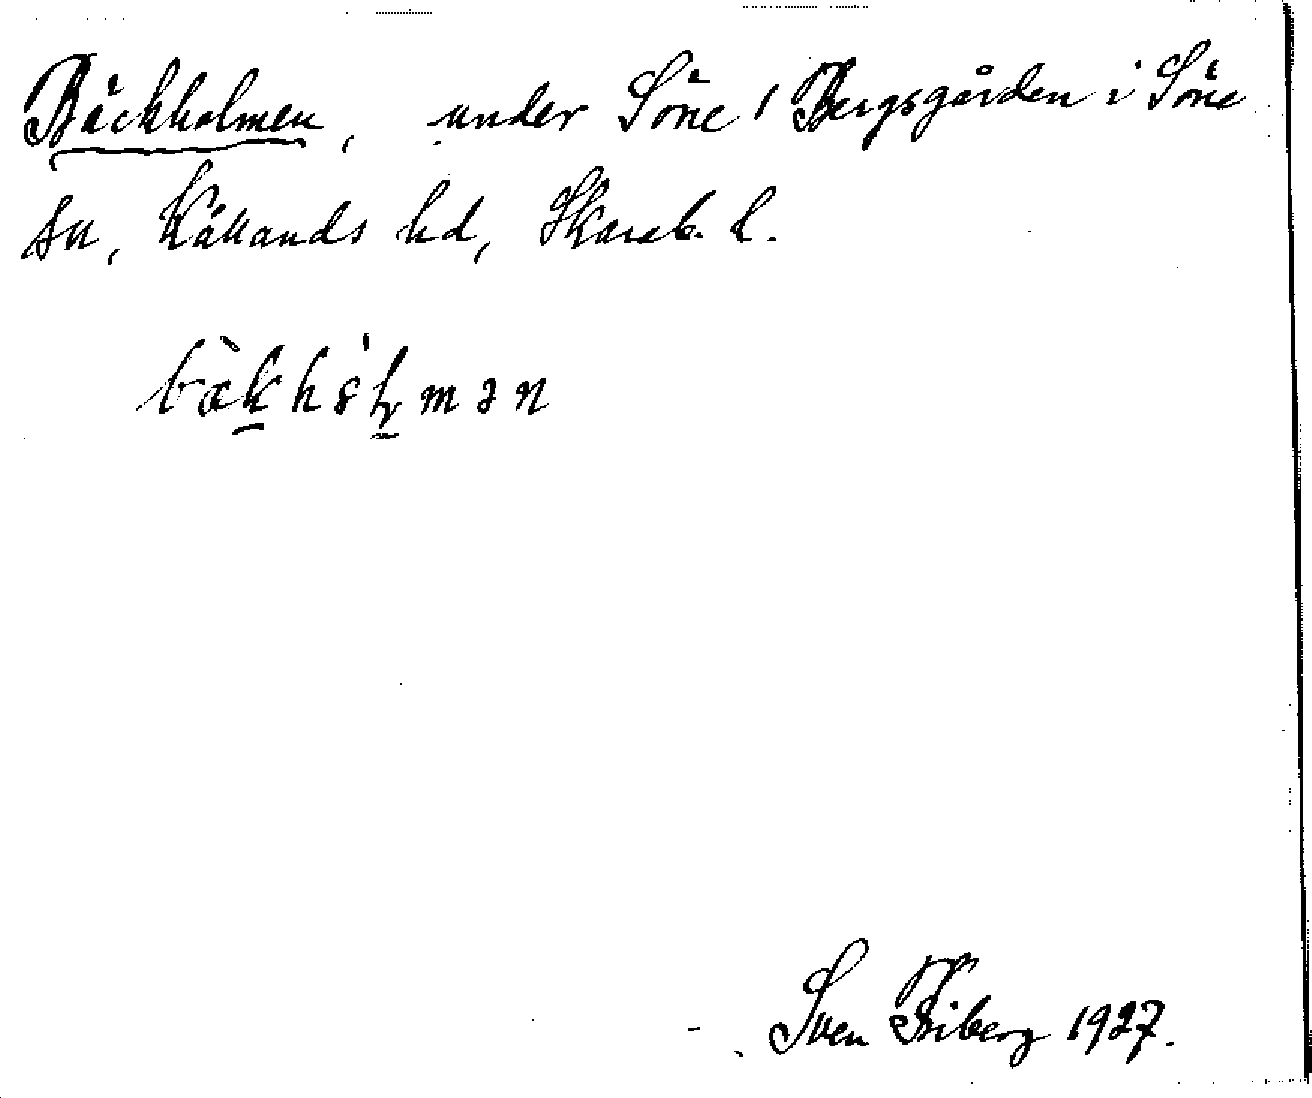 Bäckholmen, under Söne 1 Bergsgården i Söne
sn, Kållands hd, Skarab. l.
bæ̀khólmən
Sven Friberg 1927.